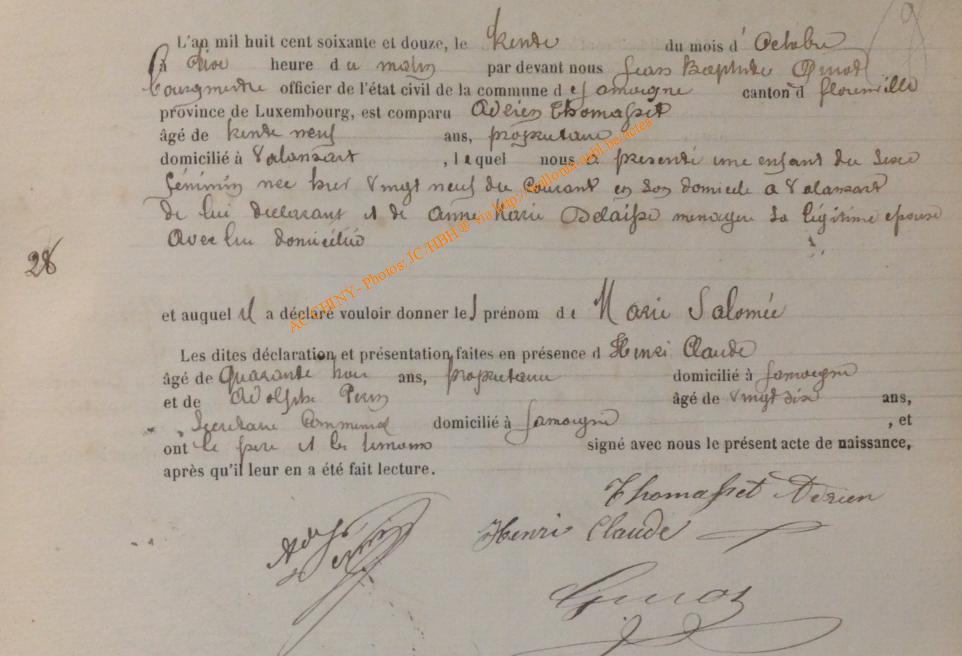 L'an mil huit cent soixante et douze, le trente du mois d' Octobre
à dix heure du matin par devant nous Jean Baptiste
bourgmestre officier de l'état civil de la commune de Jamoigne canton d florenville
province de Luxembourg, est comparu Adrien Thomasset
âgé de trente neuf ans, propriétaire
domicilié à Valansart, lequel nous a présenté une enfant du sexe
féminin née hier vingt neuf du courant en son domicile a Valansart
de lui déclarant et de Anne Marie Delaisse menagere sa légitime épouse
avec lui domiciliée
28
et auquel il a déclaré vouloir donner les prénom de Marie Salomée
Les dites déclaration et présentation faites en présence d Henri Claude
âgé de Quarante ans, propriétaire domicilié à Jamoigne
et de Adolphe âgé de vingt six ans,
Secretaire Communal domicilié à Jamoigne, et
ont le père et les temoins signé avec nous le présent acte de naissance,
après qu'il leur en a été fait lecture.
Thomasset Adrien
Henri Claude